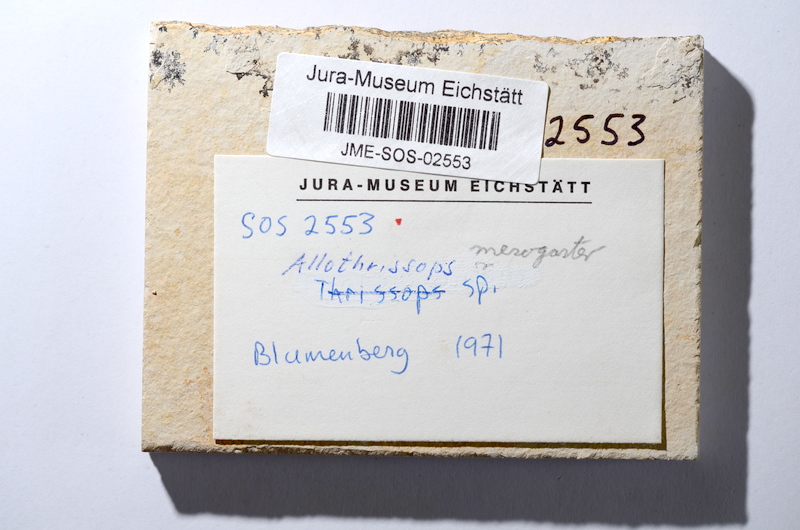 Jura-Museum Eichstätt
JME-SOS-02553
2553
JURA-MUSEUM EICHSTÄTT
SOS 2553
Allothrissops mesogaster
Thrissops sp.
Blumenberg 1971